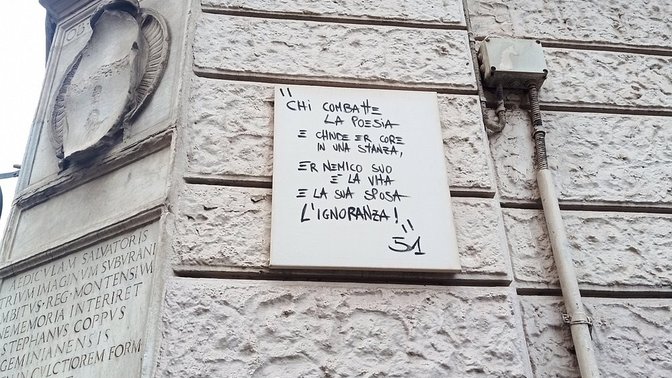 "CHI COMBATTE
LA POESIA
E CHIUDE ER CORE
IN UNA STANZA,
ER NEMICO SUO
È LA VITA
E LA SUA SPOSA
L'IGNORANZA!"
51
AEDICULAM SALVATORIS
TRIUM IMAGINUM SUBURANI
AMBITUS REG MONTENSIUM
NE MEMORIA INTERIRET
STEPHANUS COPPUS
GEMINIANENSIS
IN CULCTIOREM FORM